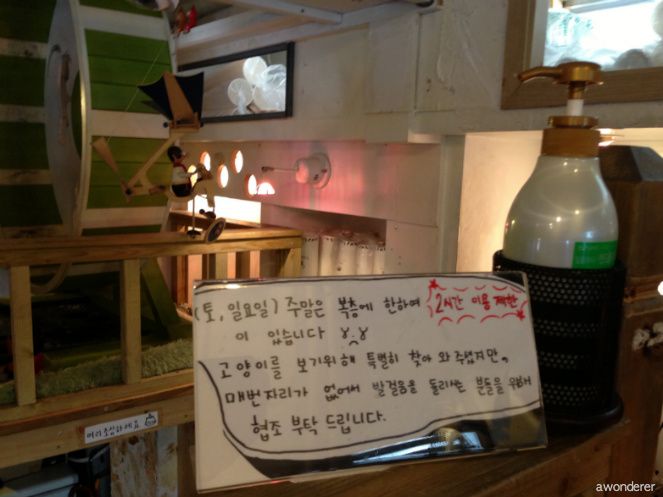 (토, 일요일) 주말은 복층에 한하여 2시간 이용 제한
이 있습니다
고양이를 보기위해 특별히 찾아 와 주셨지만,
매번 자리가 없어서 발걸음을 돌리시는 분들을 위해
협조 부탁 드립니다.
머리조심하세요
awonderer